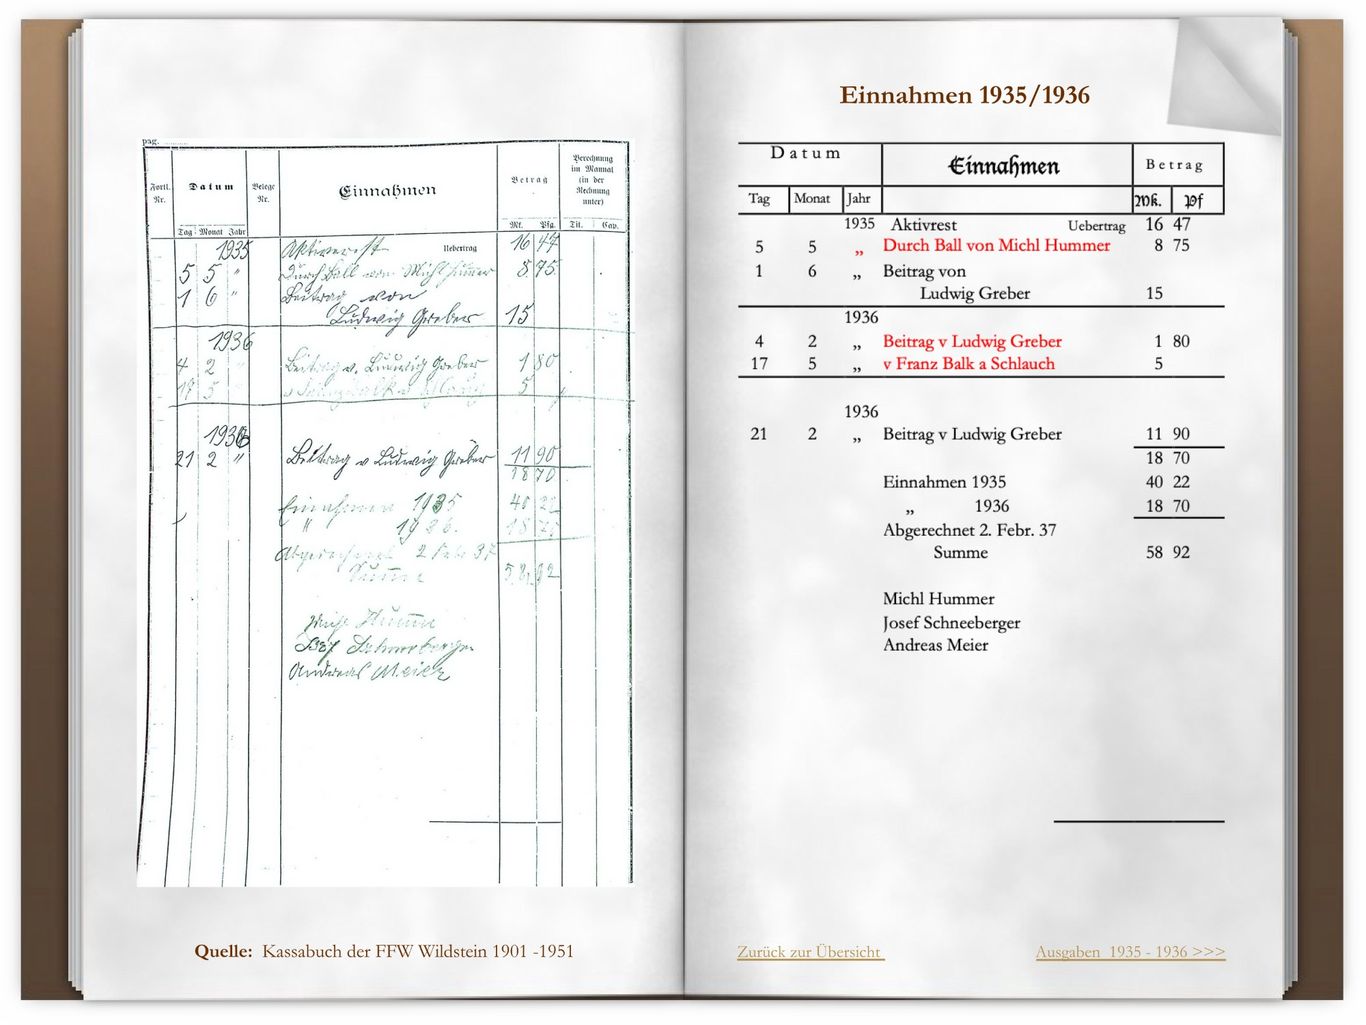 pag.
Fortl. Nr. Datum Belege Nr. Einnahmen Betrag Berechnung im Manual (in der Rechnung unter)
Tag Monat Jahr Mk. Pfg. Tit. Cap.
1935 Aktivrest Uebertrag 16 47
5 5 " Durch Ball von Michl Hummer 8 75
1 6 " Beitrag von
Ludwig Greber 15
1936
4 2 " Beitrag v. Ludwig Greber 1 80
17 5 " 5
1936
21 2 " Beitrag v Ludwig Greber 11 90
18 70
Einnahmen 1935 40 22
" 1936. 18 70
Abgerechnet 2 Febr 37
Summe 58 92
Michl Hummer
Josef Schneeberger
Andreas Meier
Quelle: Kassabuch der FFW Wildstein 1901 -1951
Einnahmen 1935/1936
Datum Einnahmen Betrag
Tag Monat Jahr Mk. Pf
1935 Aktivrest Uebertrag 16 47
5 5 „ Durch Ball von Michl Hummer 8 75
1 6 „ Beitrag von
Ludwig Greber 15
1936
4 2 „ Beitrag v Ludwig Greber 1 80
17 5 „ v Franz Balk a Schlauch 5
1936
21 2 „ Beitrag v Ludwig Greber 11 90
18 70
Einnahmen 1935 40 22
„ 1936 18 70
Abgerechnet 2. Febr. 37
Summe 58 92
Michl Hummer
Josef Schneeberger
Andreas Meier
Zurück zur Übersicht Ausgaben 1935 - 1936 >>>